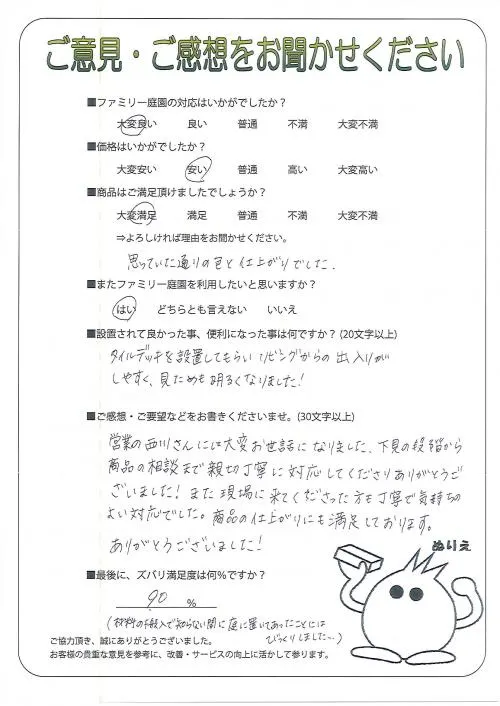 ご意見・ご感想をお聞かせください
■ファミリー庭園の対応はいかがでしたか？
大変良い 良い 普通 不満 大変不満
■価格はいかがでしたか？
大変安い 安い 普通 高い 大変高い
■商品はご満足頂けましたでしょうか？
大変満足 満足 普通 不満 大変不満
⇒よろしければ理由をお聞かせください。
思っていた通りの色と仕上がりでした。
■またファミリー庭園を利用したいと思いますか？
はい どちらとも言えない いいえ
■設置されて良かった事、便利になった事は何ですか？(20文字以上)
タイルデッキを設置してもらいリビングからの出入りが
しやすく、見ためも明るくなりました！
■ご感想・ご要望などをお書きくださいませ。(30文字以上)
営業の西川さんには大変お世話になりました。下見の段階から
商品の相談まで親切丁寧に対応してくださりありがとうご
ざいました！また現場に来てくださった方も丁寧で気持ちの
よい対応でした。商品の仕上がりにも満足しております。
ありがとうございました！
ぬりえ
■最後に、ズバリ満足度は何％ですか？
90 ％
(材料の搬入で知らない間に庭に置いてあったことには
びっくりしました…)
ご協力頂き、誠にありがとうございました。
お客様の貴重な意見を参考に、改善・サービスの向上に活かして参ります。